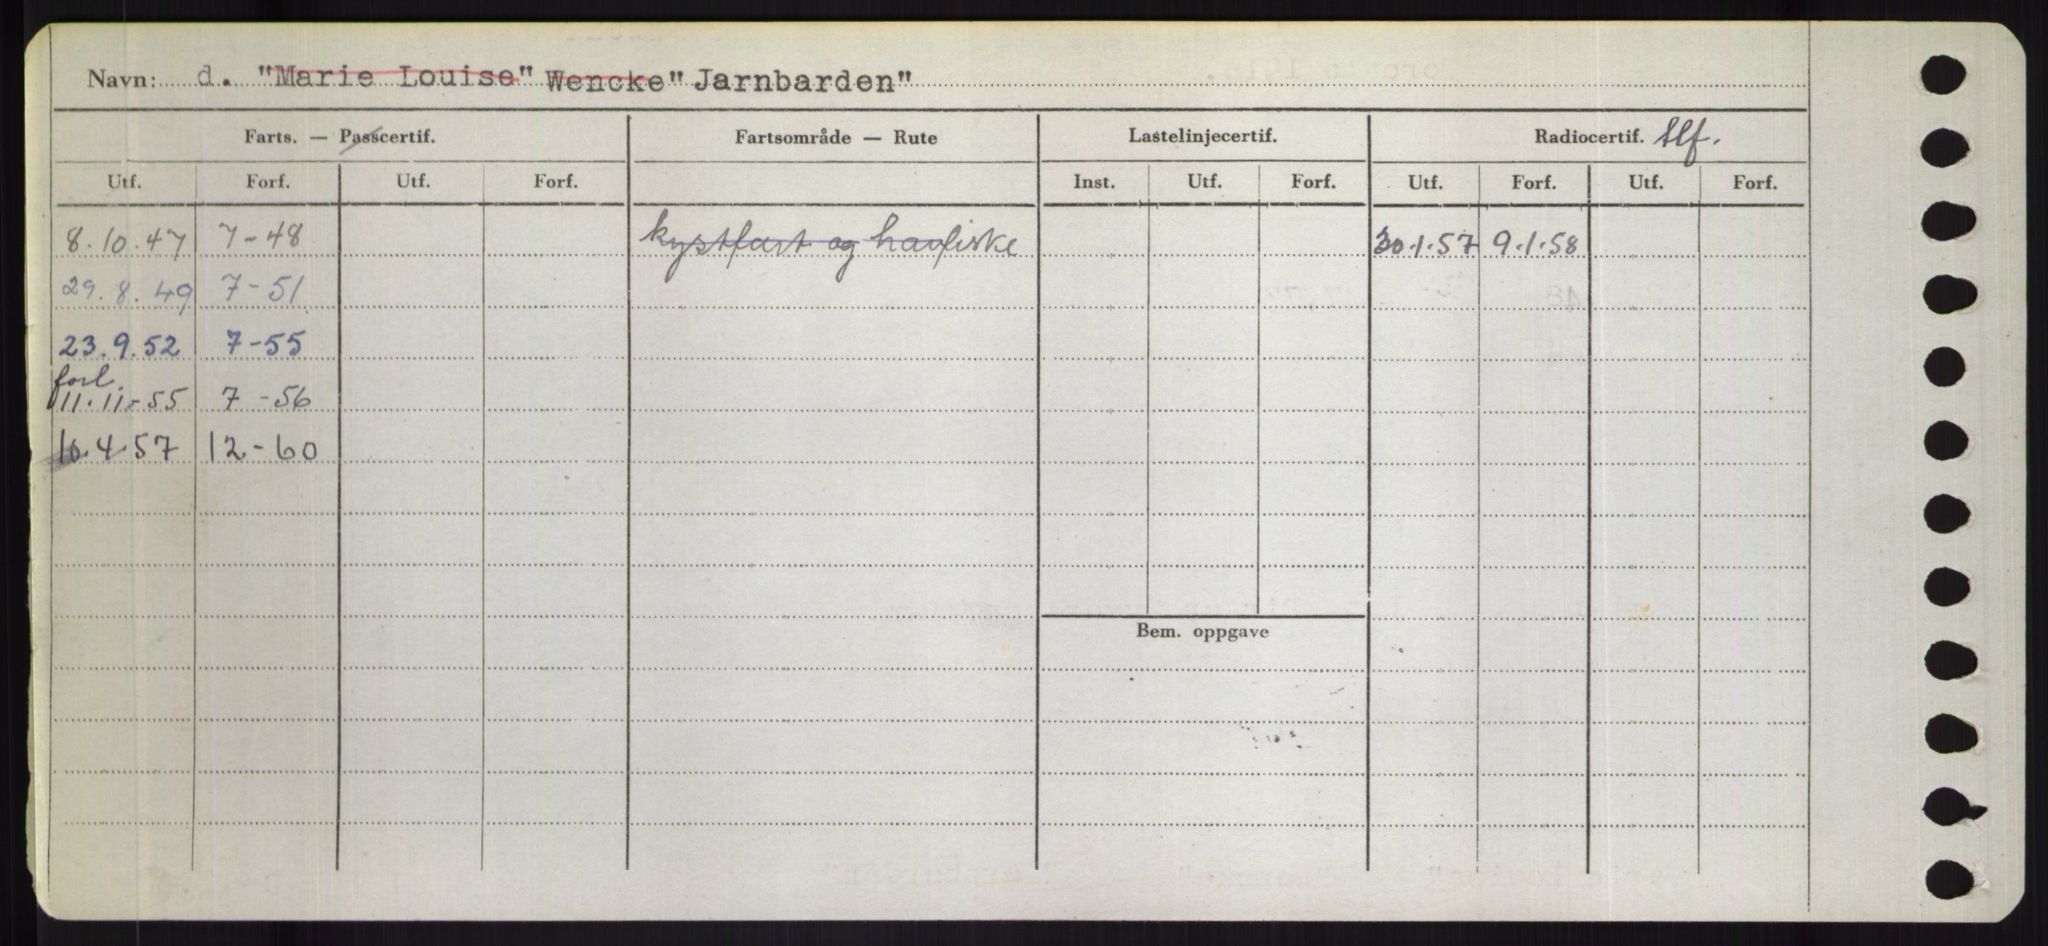 Navn: d. "Marie Louise" Wencke" Jarnbarden"
Farts. — Passcertif. Fartsområde — Rute Lastelinjecertif. Radiocertif. tlf.
Utf. Forf. Utf. Forf. Inst. Utf. Forf. Utf. Forf. Utf. Forf.
8.10.47 7-48 kystfart og havfiske 30.1.57 9.1.58
29.8.49 7-51
23.9.52 7-55
forl.
11.11.-55 7-56
10.4.57 12-60
Bem. oppgave